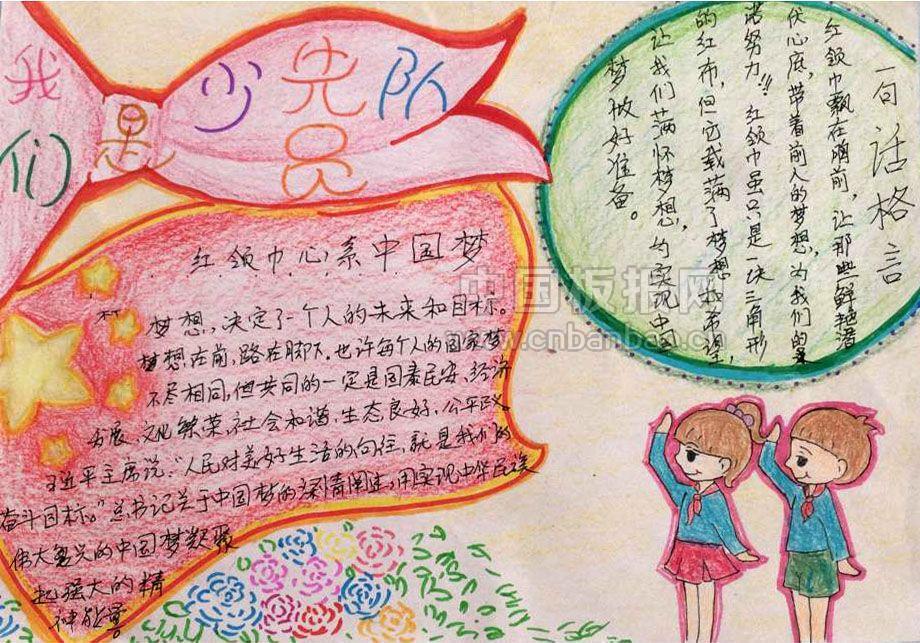 我们是少先队员
红领巾心系中国梦
梦想，决定了一个人的未来和目标。
梦想在前，路在脚下。也许每个人的国家梦
不尽相同，但共同的一定是国泰民安、经济
发展、文化繁荣、社会和谐、生态良好、公平政
习近平主席说：“人民对美好生活的向往，就是我们的
奋斗目标。”总书记关于中国梦的深情阐述，用实现中华民族
伟大复兴的中国梦凝聚
起强大的精
神能量。
一句话格言
红领巾飘在胸前，让那些鲜艳潜
伏心底，带着前人的梦想，为我们的
诺努力!! 红领巾虽只是一块三角形
的红布，但它载满了梦想，我希望，
让我们满怀梦想，为实现中国
梦做好准备。
中国板报网
www.cnbanbao.cn